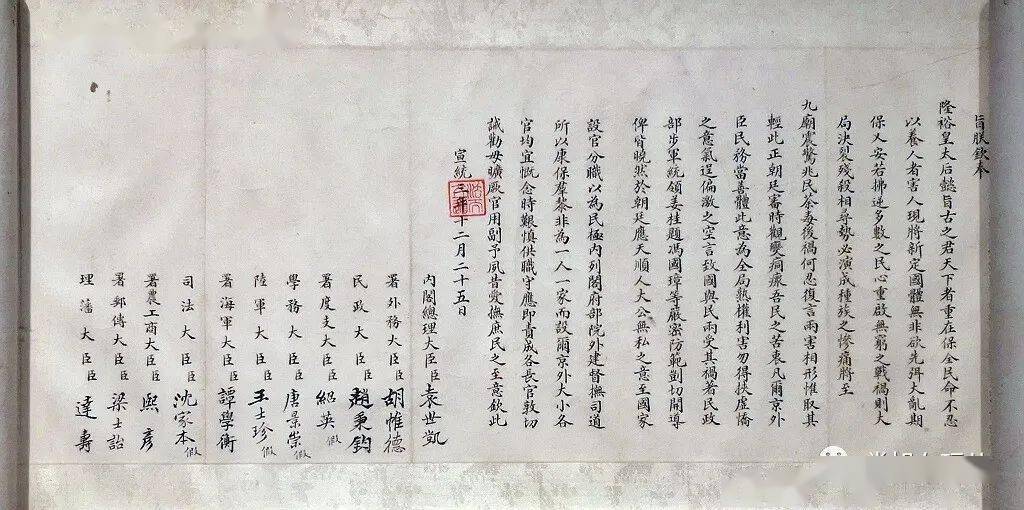 旨朕欽奉
隆裕皇太后懿旨古之君天下者重在保全民命不忍
以養人者害人現將新定國體無非欲先弭大亂期
保乂安若拂逆多數之民心重啟無窮之戰禍則大
局決裂殘殺相尋勢必演成種族之慘痛將至
九廟震驚兆民荼毒後禍何忍復言兩害相形惟取其
輕此正朝廷審時觀變痌瘝吾民之苦衷凡爾京外
臣民務當善體此意為全局熟權利害勿得挾虛憍
之意氣逞偏激之空言致國與民兩受其禍著民政
部步軍統領姜桂題馮國璋等嚴密防範剴切開導
俾皆曉然於朝廷應天順人大公無私之意至國家
設官分職以為民極內列閣府部院外建督撫司道
所以康保羣黎非為一人一家而設爾京外大小各
官均宜慨念時艱慎供職守應即責成各長官敦切
誡勸毋曠厥官用副予夙昔愛撫庶民之至意欽此
宣統三年十二月二十五日
內閣總理大臣臣袁世凱
署外務大臣臣胡惟德
民政大臣臣趙秉鈞
署度支大臣臣紹英假
學務大臣臣唐景崇假
陸軍大臣臣王士珍假
署海軍大臣臣譚學衡
司法大臣臣沈家本假
署農工商大臣臣熙彥
署郵傳大臣臣梁士詒
理藩大臣臣達壽